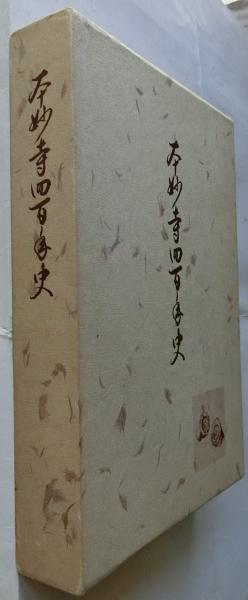 本妙寺四百年史
本妙寺四百年史